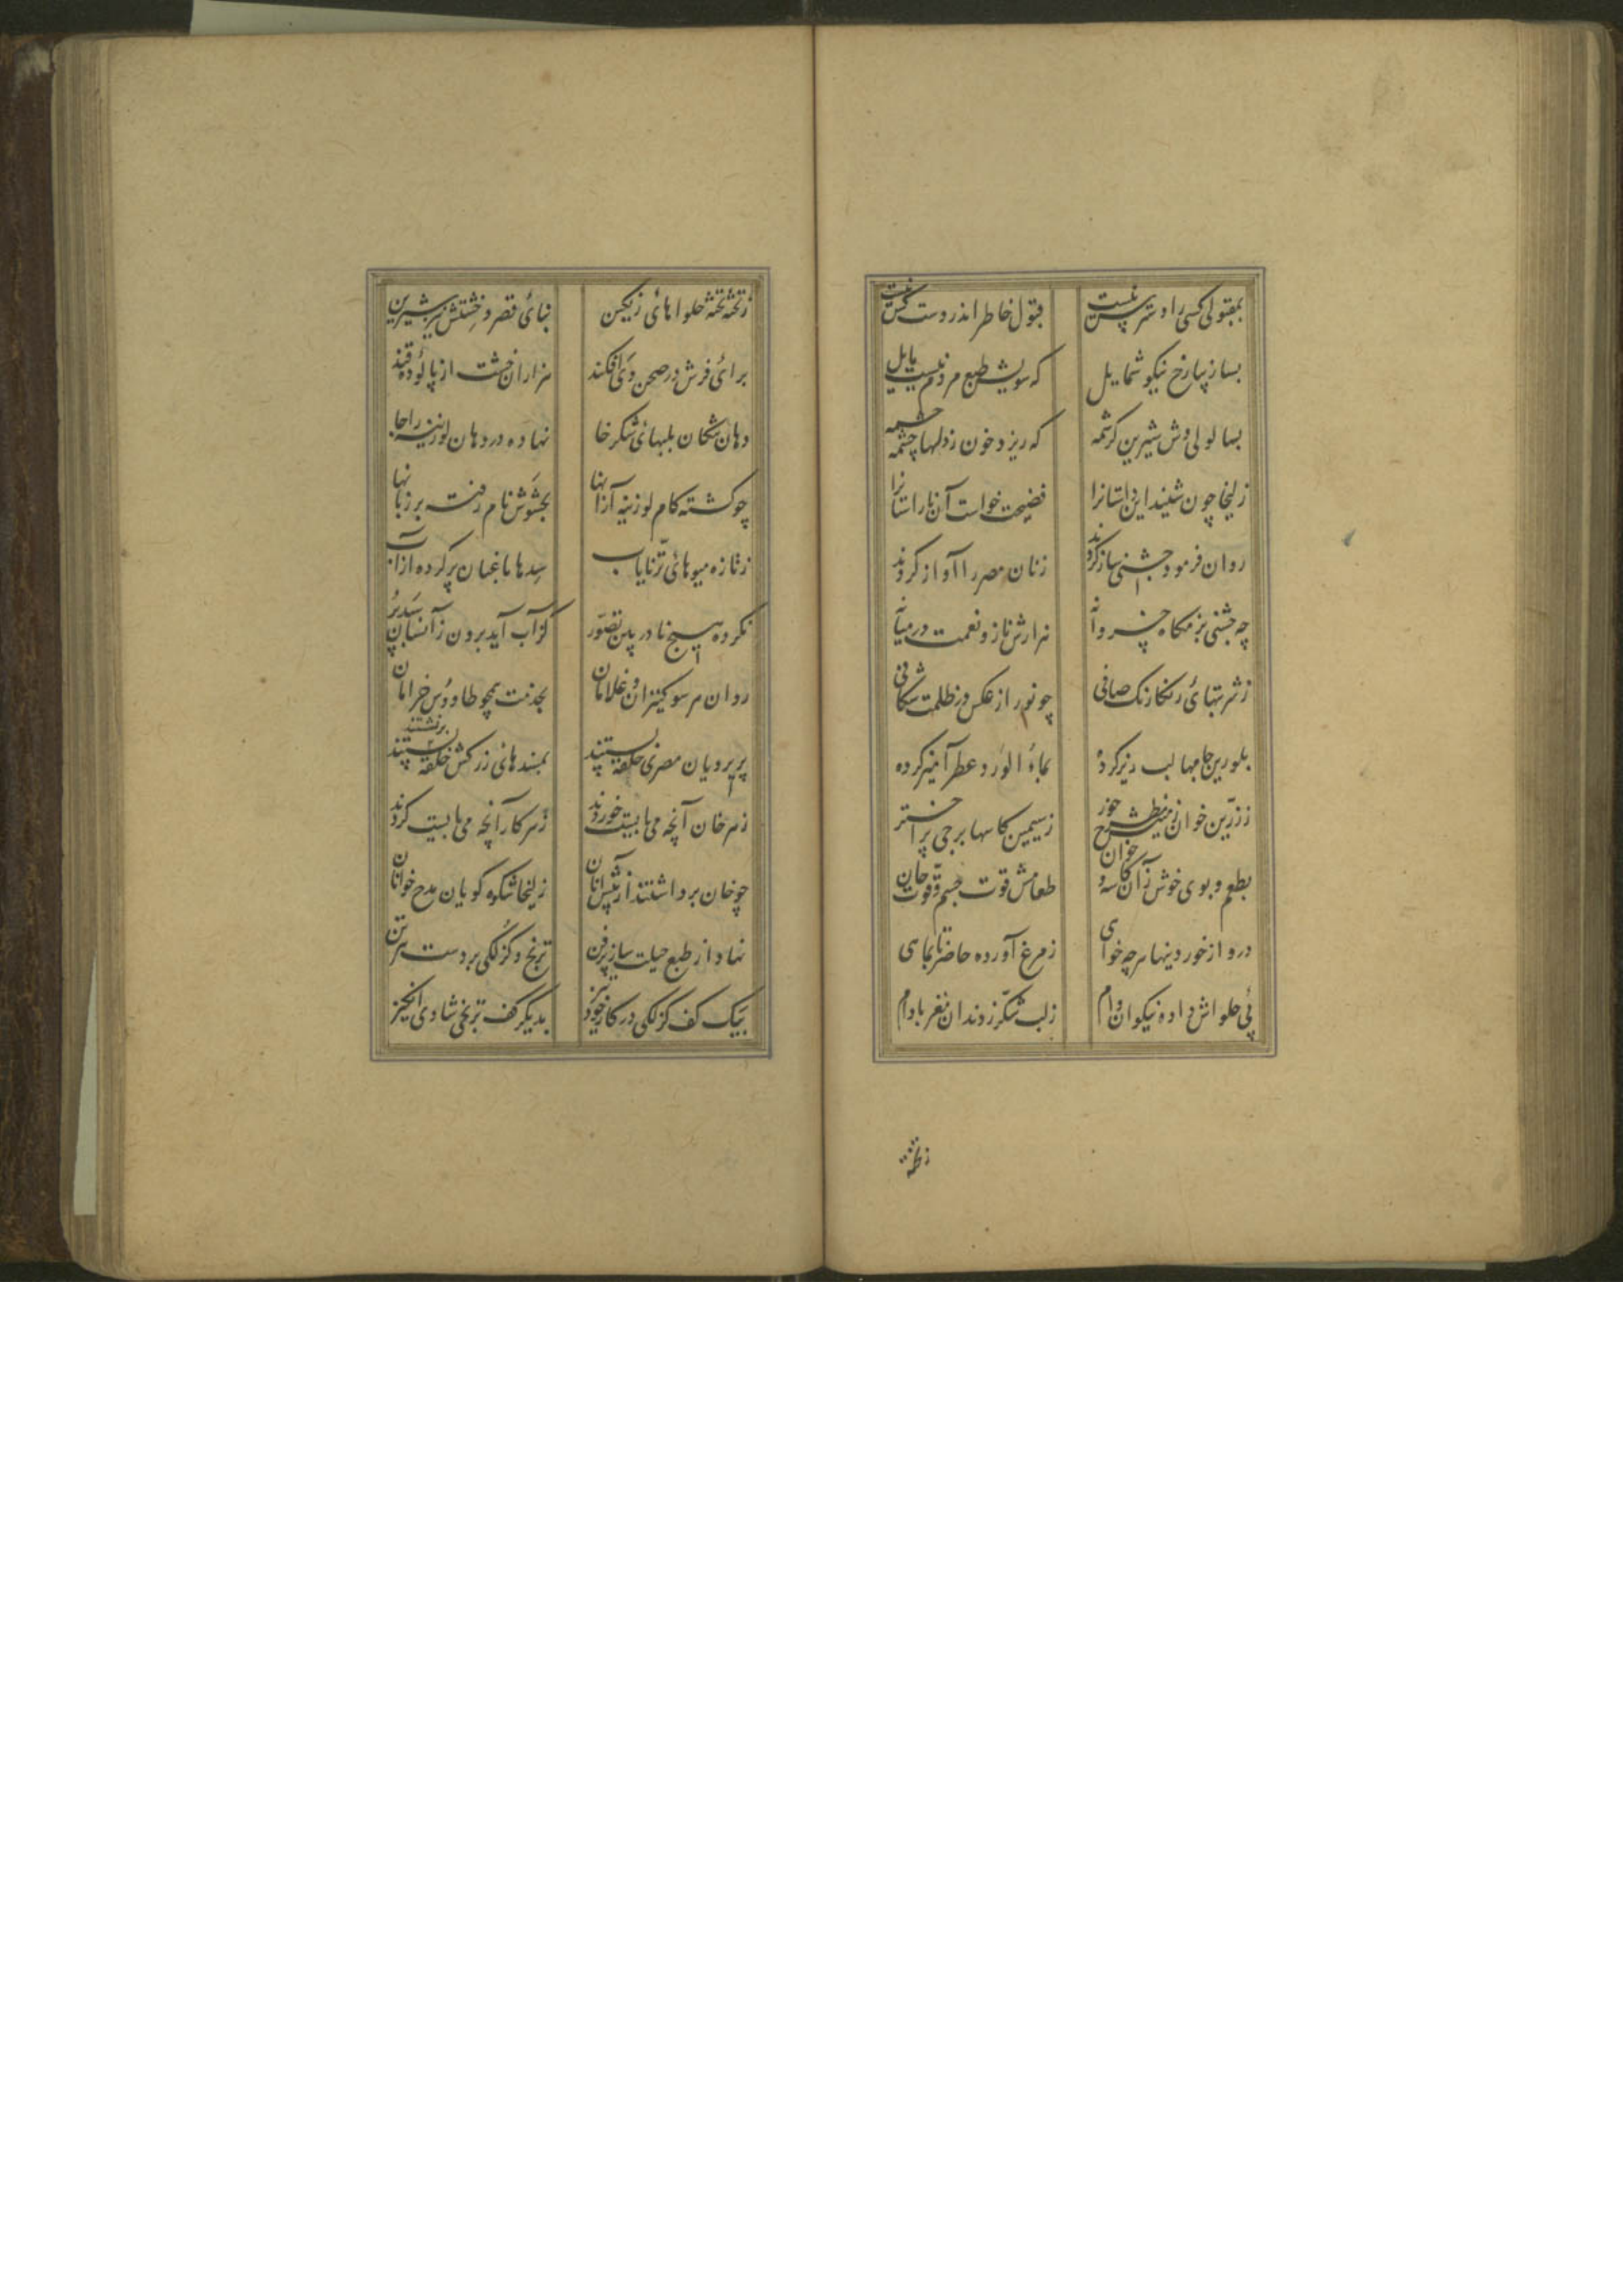 بمقبولی کسی را دسترس نیست
قبول خاطر اندر دست کس نیست
بسا زیبا رخ نیکو شمایل
که سویش طبع مردم نیست مایل
بسا لولی وش شیرین کرشمه
که ریزد خون ز دلها چشمه چشمه
زلیخا چون شنید این داستانرا
فضیحت خواست آن ناراستانرا
روان فرمود جشنی ساز کردند
زنان مصر را آواز کردند
چه جشنی بزمکاه خسروانه
هزارش ناز و نعمت در میانه
ز شربتهای رنکارنک صافی
چو نور از عکس در ظلمت شکافی
بلورین جامها لب ریز کرده
بماء الورد عطر آمیز کرده
ز زرین خوان زمینش مطرح خور
ز سیمین کاسها برجی پر اختر
بطعم و بوی خوش زان کاسه و خوان
طعامش قوت جسم و قوت جان
درو از خوردنیها هر چه خواهی
ز مرغ آورده حاضر تا بماهی
پی حلواش داده نیکوان وام
ز لب شکر ز دندان مغز بادام
ز تخته
ز تخته تخته حلواهای رنکین
بنای قصر و خشتش نیز شیرین
برای فرش در صحن وی افکند
هزاران خشت از پالوده قند
دهان تنکان بلبهای شکرخا
نهاده در دهان لوزینه را جا
چو کشته کام لوزینه آزانها
بحشوش نام رفت بر زبانها
ز تازه میوهای تر نایاب
سبدها باغبان پر کرده از آب
نکرده هیچ نادر بین تصور
کز آب آید برون زانسان سبد پر
روان هر سو کنیزان و غلامان
بخدمت همچو طاووس خرامان
پریرویان مصری حلقه بستند
بمسندهای زرکش برنشستند
ز هر خان آنچه می بایست خوردند
ز هر کار آنچه می بایست کردند
چو خان برداشتند از پیش آنان
زلیخا شکرکویان مدح خوانان
نهاد از طبع حیلت ساز پر فن
ترنج و کزلکی بر دست هر تن
بیک کف کزلکی در کار خود تیز
بدیکر کف ترنجی شادی انکیز